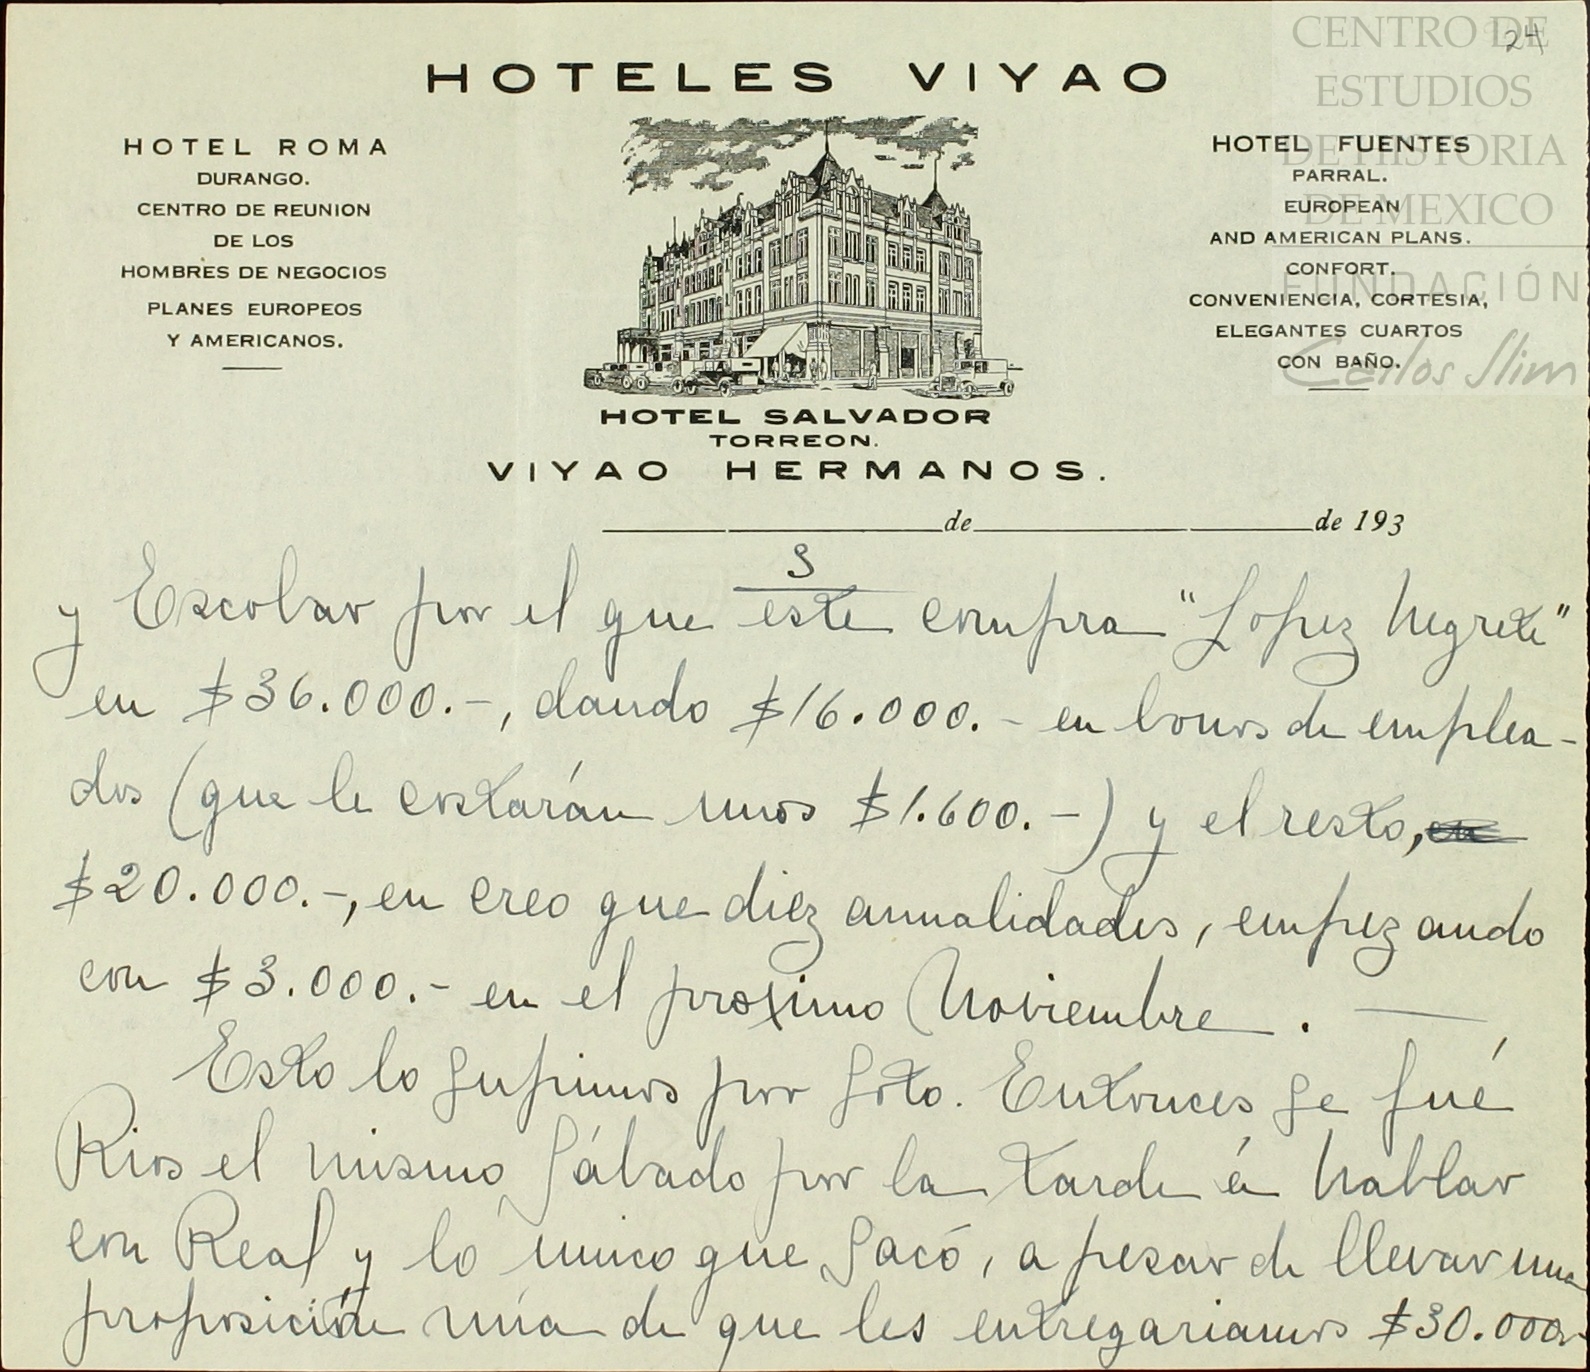 24
CENTRO DE
ESTUDIOS
DE HISTORIA
DE MEXICO
FUNDACIÓN
Carlos Slim
HOTELES VIYAO
HOTEL ROMA
DURANGO.
CENTRO DE REUNION
DE LOS
HOMBRES DE NEGOCIOS
PLANES EUROPEOS
Y AMERICANOS.
HOTEL FUENTES
PARRAL.
EUROPEAN
AND AMERICAN PLANS.
CONFORT.
CONVENIENCIA, CORTESIA,
ELEGANTES CUARTOS
CON BAÑO.
HOTEL SALVADOR
TORREON.
VIYAO HERMANOS.
de de 193
3
y Escobar por el que este compra "Lopez Negrete"
en $36.000.-, dando $16.000.- en bonos de emplea-
dos (que le costarán unos $1.600.-) y el resto,
$20.000.-, en creo que diez anualidades, empezando
con $3.000.- en el proximo Noviembre.
Esto lo supimos por Soto. Entonces se fué
Rios el mismo Sábado por la tarde á hablar
con Real y lo único que sacó, a pesar de llevar una
proposición mía de que les entregariamos $30.000.-